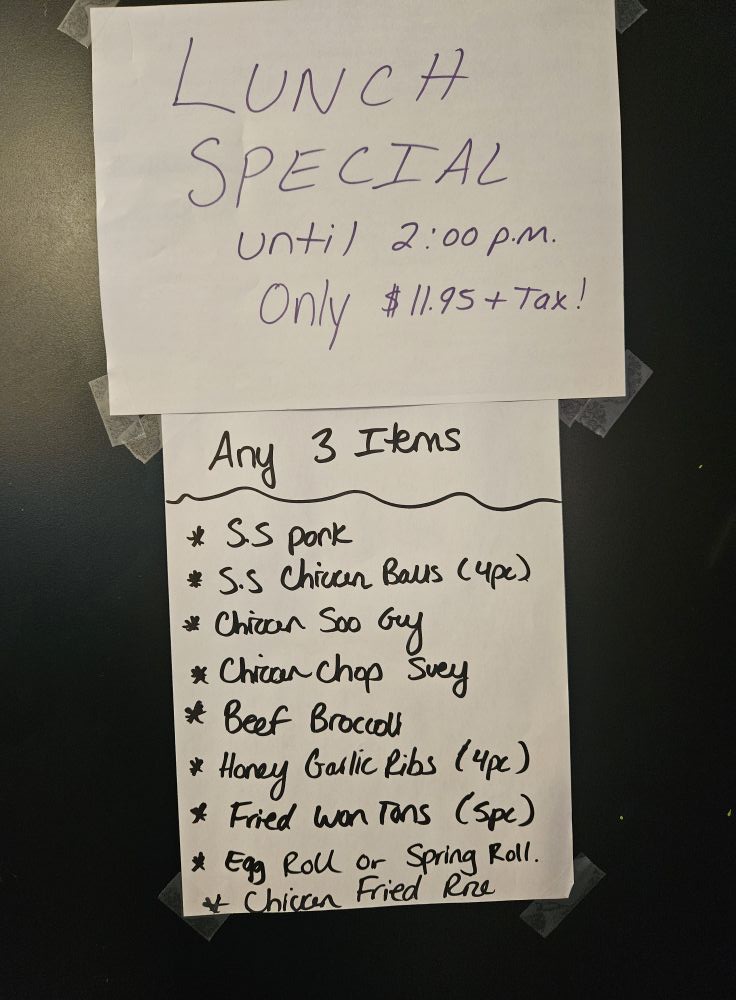 LUNCH
SPECIAL
until 2:00 p.m.
Only $11.95 + Tax!
Any 3 Items
* S.S pork
* S.S Chicken Balls (4pc)
* Chicken Soo Guy
* Chicken Chop Suey
* Beef Broccoli
* Honey Garlic Ribs (4pc)
* Fried Won Tons (5pc)
* Egg Roll or Spring Roll.
* Chicken Fried Rice